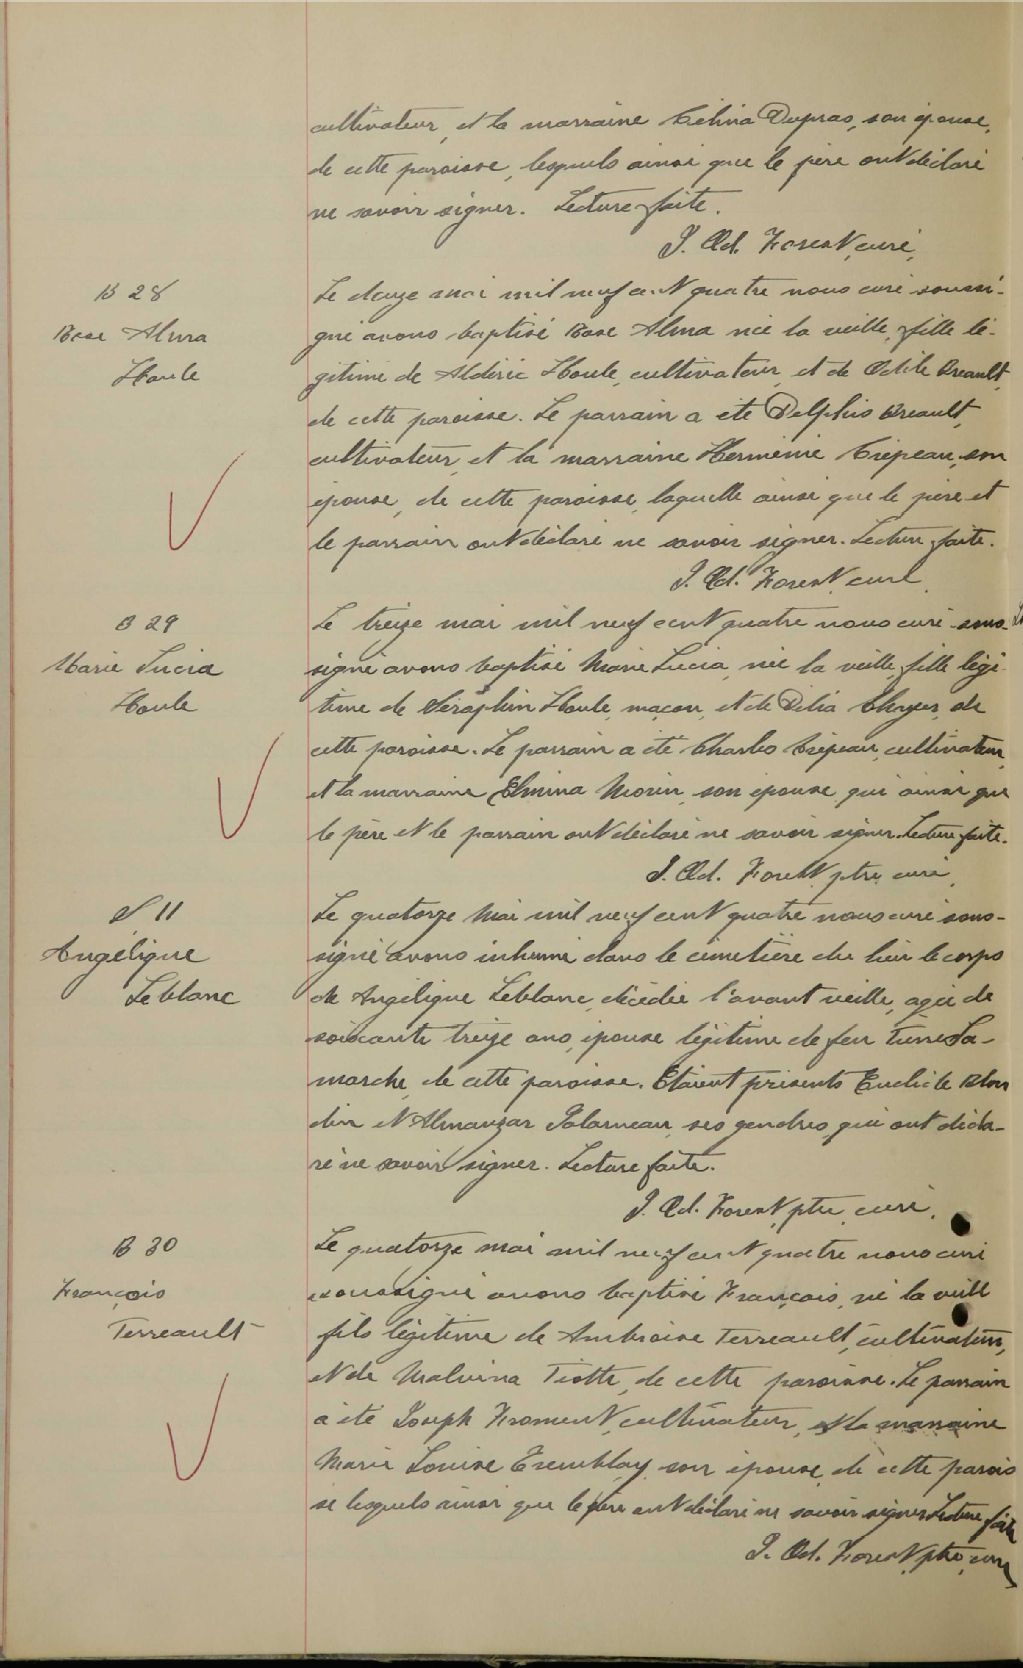 cultivateur, et la marraine Célina Dupras, son épouse,
de cette paroisse, lesquels ainsi que le père ont déclaré
ne savoir signer. Lecture faite.
J. Od. Forest, curé,
B 28
Rose Alma
Houle
Le douze mai mil neuf cent quatre nous curé soussi-
gné avons baptisé Rose Alma née la veille, fille lé-
gitime de Aldéric Houle, cultivateur, et de Odile Breault,
de cette paroisse. Le parrain a été Delphis Breault,
cultivateur, et la marraine Herménie Crépeau, son
épouse, de cette paroisse, laquelle ainsi que le père et
le parrain ont déclaré ne savoir signer. Lecture faite.
J. Od. Forest, curé
B 29
Marie Lucia
Houle
Le treize mai mil neuf cent quatre nous curé sous-
signé avons baptisé Marie Lucia, née la veille, fille légi-
time de Séraphin Houle, maçon, et de Délia de
cette paroisse. Le parrain a été Charles Crépeau, cultivateur,
et la marraine Elmina Morin, son épouse qui ainsi que
le père et le parrain ont déclaré ne savoir signer. Lecture faite.
J. Od. Forest, ptre curé
S 11
Angélique
Leblanc
Le quatorze Mai mil neuf cent quatre nous curé sous-
signé avons inhumé dans le cimetière du lieu le corps
de Angélique Leblanc, décédée l'avant veille, agée de
soixante treize ans, épouse légitime de feu La-
marche, de cette paroisse. Etaient présents Euclide Blon
din et Almanzar Palarneau, ses gendres, qui ont décla-
ré ne savoir signer. Lecture faite.
J. Od. Forest, ptre, curé.
B 30
François
Terreault
Le quatorze mai mil neuf cent quatre nous curé
soussigné avons baptisé François, né la veille
fils légitime de Ambroise Terreault, cultivateur,
et de Malvina Tiotte, de cette paroisse. Le parrain
a été Joseph Froment, cultivateur, et la marraine
Marie Louise Tremblay, son épouse, de cette parois
se lesquels ainsi que le père ont déclaré ne savoir signer Lecture faite
J. Od. Forest, ptre, curé